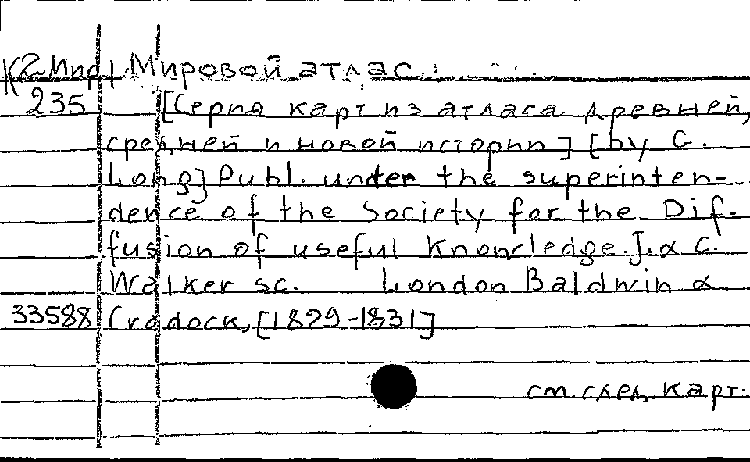 К2-Мир Мировой атлас.
235 [Серия карт из атласа древней,
средней и новой истории] [by G.
Long] Publ. under the superinten-
dence of the Society for the Dif-
fusion of useful Knowledge. J. & C.
Walker sc. London Baldwin &
33588 Cradock, [1829-1831]
см. след. карт.